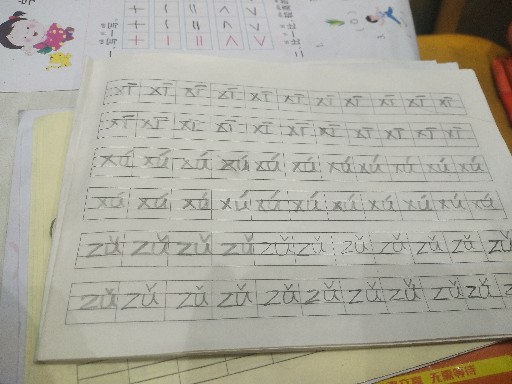 写一写
+ = > <
+ = > <
+ = > <
比一比
xī xī xī xī xī xī xī xī xī xī xī
xī xī xī xī xī xī xī xī xī xī xī
xú xú xú xú xú xú xú xú xú xú xú
xú xú xú xú xú xú xú xú xú xú xú
zǔ zǔ zǔ zǔ zǔ zǔ zǔ zǔ zǔ zǔ zǔ
zǔ zǔ zǔ zǔ zǔ zǔ zǔ zǔ zǔ zǔ
无需等待